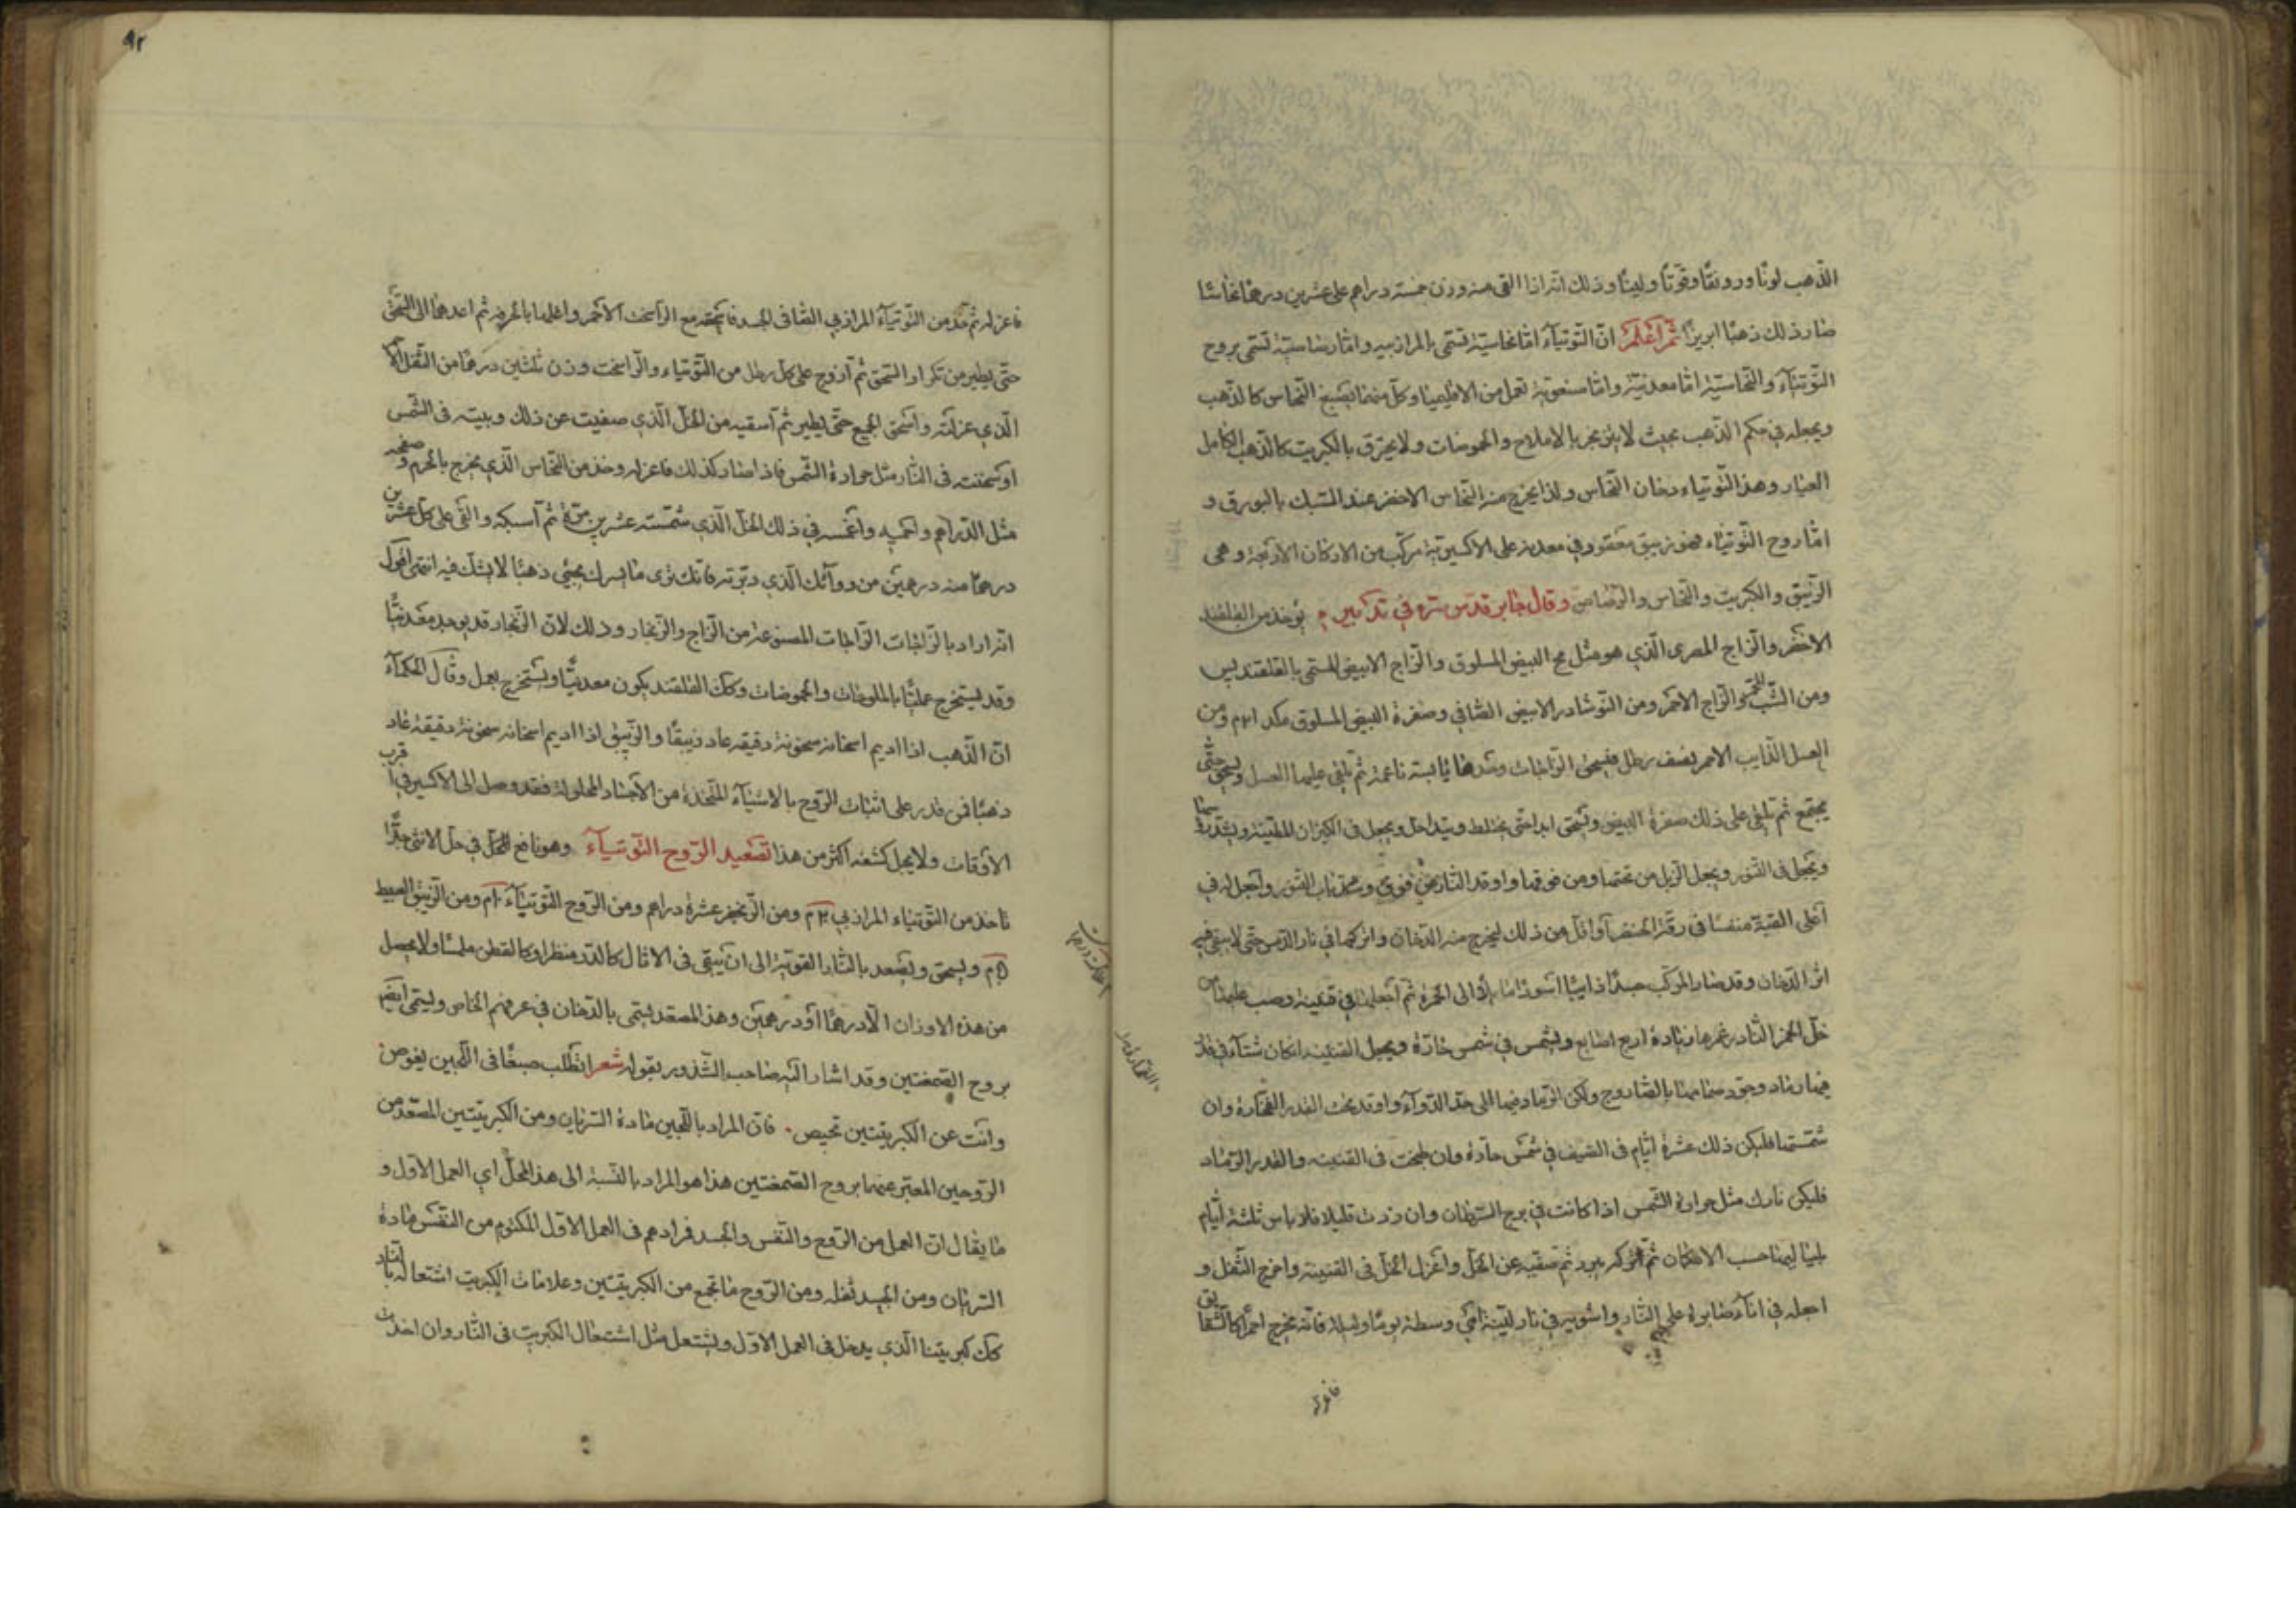 الذهب لونًا ورونقًا وقوتًا ولينًا وذلك انه اذا القى منه وزن خمسة دراهم على عشرين درهما نحاسًا
صار ذلك ذهبًا ابريزًا ثم اعلم ان التوتياء اما نحاسية تسمى بالمرازبيه واما رصاصية تسمى بروح
التوتياء والنحاسية اما معدنية واما مصنوعة تعمل من الاقليميا وكل منهما يصبغ النحاس كالذهب
ويجعله في حكم الذهب بحيث لا يتزنجر بالاملاح والحموضات ولا يحترق بالكبريت كالذهب الكامل
العيار وهذا التوتياء دخان النحاس ولذا يخرج منه النحاس الاحمر عند السبك بالبورق و
اما روح التوتياء فهو زيبق معقود في معدنه على الاكسيرية مركب من الاركان الاربعة وهى
الزيبق والكبريت والنحاس والرصاص وقال جابر قدس سره في تدابيره يؤخذ من القلقند
الاخضر والزاج المصرى الذي هو مثل مح البيض المسلوق والزاج الابيض المسمى بالقلقنديس
ومن الشب والزاج الاحمر ومن النوشادر الابيض الصافي وصفرة البيض المسلوق مكد ٣ام ومن
العسل الذايب الاحمر نصف رطل فيسحق الزاجات وحدها يابسة ناعمة ثم يلقى عليها العسل ويسحق حتى
يجتمع ثم يلقى على ذلك صفرة البيض ويسحق ابدا حتى يختلط ويتداخل ويجعل في الكيزان المطينة ويشد
ويجعل في التنور ويجعل الزبل من تحتها ومن فوقها واوقد النار حتى قوى وسد باب التنور واجعل له في
اعلى القبة منفسًا في رقة الخنصر او اقل من ذلك ليخرج منه الدخان واتركها في نار الدس حتى لا يبقى فيه
اثر الدخان وقد صار المركب جسدًا ذائبًا اسود مايلا الى الحمرة ثم اجعلها في قنينة وصب عليها
خل الخمر الثادر غمرها وزيادة اربع اصابع ويشمس في شمس حارة ويجعل القنينة ان كان شتاء في قدر
فيها رماد وجود صمامها بالصاروج ولكن الرماد فيها الى حد الدواء واوقد تحت القدر الفخارة وان
شمستها فليكن ذلك عشرة ايام في الصيف في شمس حادة وان طبخت في القنينة والقدر الرماد
فليكن نارك مثل حرارة الشمس اذا كانت في برج السرطان وان زدت قليلا فلا باس ثلثة ايام
بلياليها حسب الامكان ثم اتركه يبرد ثم صفيه عن الخل واعزل الخل في القنينة واخرج الثفل و
اجعله في اناء صابرة على النار واشويه في نار لينة اعنى وسطة يوما وليلة فانه يخرج احمرا كالشقا
يق
فاعزله
فاعزله ثم خذ من التوتياء المرازبي الصافى الجسد فاسحقه مع الراسخت الاحمر واغلها بالحرفه ثم اعدهما الى السحق
حتى يطير من تكرار السحق ثم ازوج على كل رطل من التوتياء والراسخت وزن ثلثين درهما من الثفل
الذي عزلته واسحق الجميع حتى يطير ثم اسقيه من الخل الذي صفيت عن ذلك وبيته في الشمس
او سخنته في النار مثل حرارة الشمس فاذا صار كذلك فاعزله وخذ من النحاس الذي يخرج بالحزم وصفحه
مثل الدراهم واحميه واغمسه في ذلك الخل الذي شمسته عشرين مرة ثم اسبكه والق على كل عشرين
درهما منه درهمين من دوائك الذي دبرته فانك ترى ما يسرك يجئ ذهبًا لا يشك فيه انتهى اقول
انه اراد بالزاجات الزاجات المصنوعة من الزاج والزنجار وذلك لان الزنجار قد يوجد معدنيًا
وقد يستخرج عمليًا بالملوحات والحموضات وكذلك القلقند يكون معدنيًا ويستخرج بعمل وقال الحكماء
ان الذهب اذا اديم اسخانه سخونة دقيقه عاد زيبقًا والزيبق اذا اديم اسخانه سخونة دقيقة عاد
ذهبًا فمن قدر على اثبات الروح بالاشياء المتخذة من الاجساد المحلولة فقد وصل الى الاكسير في اقرب
الاوقات ولا يحل كشفه اكثر من هذا تصعيد الروح التوتياء وهو نافع للخل في حل الانثى جدًا
تاخذ من التوتياء المرازبي ٣م ومن الزنجفر عشرة دراهم ومن الروح التوتياء ١٠م ومن الزيبق العبيط
١٥م ويسحق ويصعد بالنار القوية الى ان يبقى في الاثال كالدر منظرا وكالقطن ملمسًا ولا يحصل
من هذه الاوزان الا درهما او درهمين وهذا المصعد يسمى بالدخان في عرفهم الخاص ويسمى ايضا
بروح الصمغتين وقد اشار اليه صاحب الشذور بقوله شعر اتطلب صبغًا في اللجين يغوص
وانت عن الكبريتتين تحيص. فان المراد باللجين مادة السرياين ومن الكبريتتين المصعد من
الروحين المعبر عنهما بروح الصمغتين هذا هو المراد بالنسبة الى هذا المحل اي العمل الاول و
ما يقال ان العمل من الروح والنفس والجسد فمرادهم في العمل الاول المكتوم من النفس مادة
السريان ومن الجسد ثفله ومن الروح ما تجمع من الكبريتتين وعلامات الكبريت اشتعاله بالنار
كذلك كبريتنا الذي يدخل في العمل الاول ويشتعل مثل اشتعال الكبريت في النار وان اخذت
٩٢